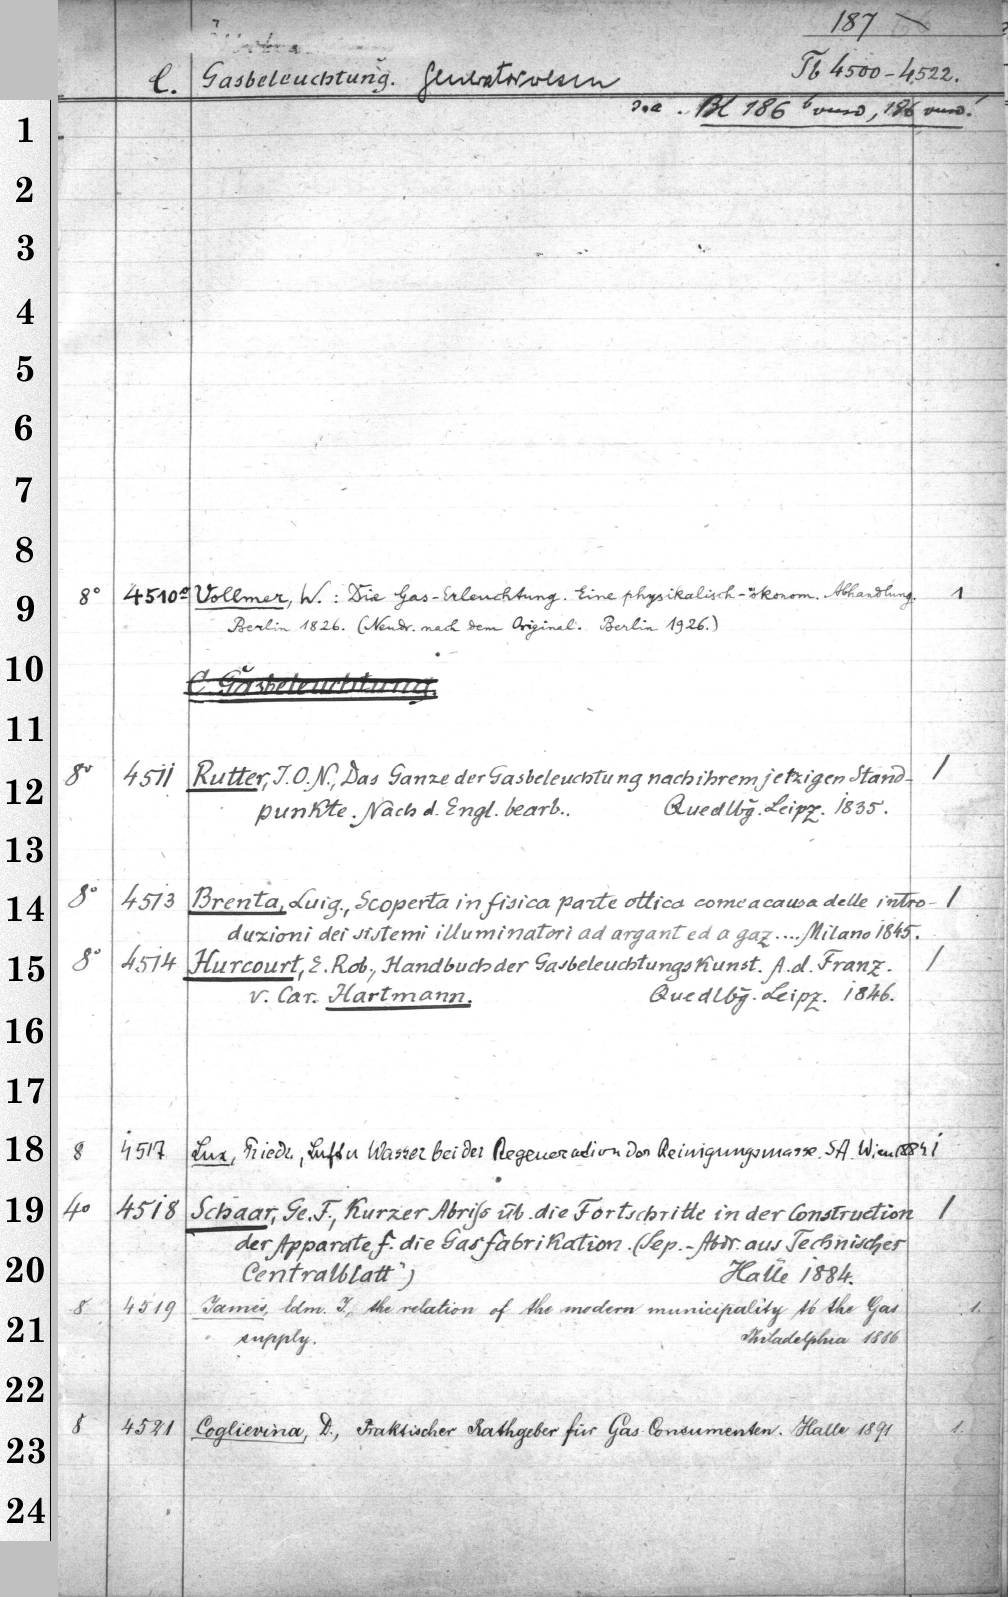 187
C. Gasbeleuchtung. Generatorwesen Tb 4500-4522.
s. a. Bl 186
1
2
3
4
5
6
7
8
9 8° 4510a Vollmer, W. : Die Gas-Erleuchtung. Eine physikalisch-ökonom. Abhandlung. 1
Berlin 1826. (Neudr. nach dem Original. Berlin 1926.)
10 C. Gasbeleuchtung.
11
12 8° 4511 Rutter, J. O. N., Das Ganze der Gasbeleuchtung nach ihrem jetzigen Stand- 1
punkte. Nach d. Engl. bearb.. Quedlbg. Leipz. 1835.
13
14 8° 4513 Brenta, Luig., Scoperta in fisica parte ottica come a causa delle intro- 1
duzioni dei sistemi illuminatori ad argant ed a gaz .... Milano 1845.
15 8° 4514 Hurcourt, E. Rob., Handbuch der Gasbeleuchtungskunst. A. d. Franz. 1
v. Car. Hartmann. Quedlbg. Leipz. 1846.
16
17
18 8 4517 Lux, Friedr., Luft u Wasser bei der Regeneration der Reinigungsmasse. SA. Wien 1884 1
19 4° 4518 Schaar, Ge. F., Kurzer Abriss üb. die Fortschritte in der Construction 1
der Apparate f. die Gasfabrikation. (Sep.-Abdr. aus Technischer
20 Centralblatt") Halle 1884.
8 4519 James, Edm. J., the relation of the modern municipality to the Gas 1.
21 supply. Philadelphia 1886
22
8 4521 Coglievina, D., Praktischer Rathgeber für Gas Consumenten. Halle 1891 1.
23
24